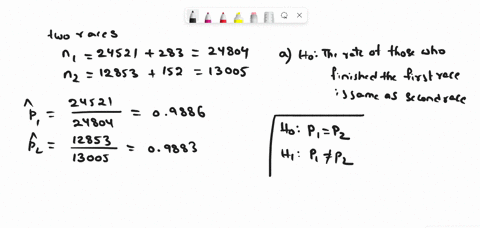 two races
n₁ = 24521 + 283 = 24804
n₂ = 12853 + 152 = 13005
p̂₁ = 24521/24804 = 0.9886
p̂₂ = 12853/13005 = 0.9883
a) H₀: The rate of those who
finished the first race
is same as second race
H₀: P₁ = P₂
H₁: P₁ ≠ P₂